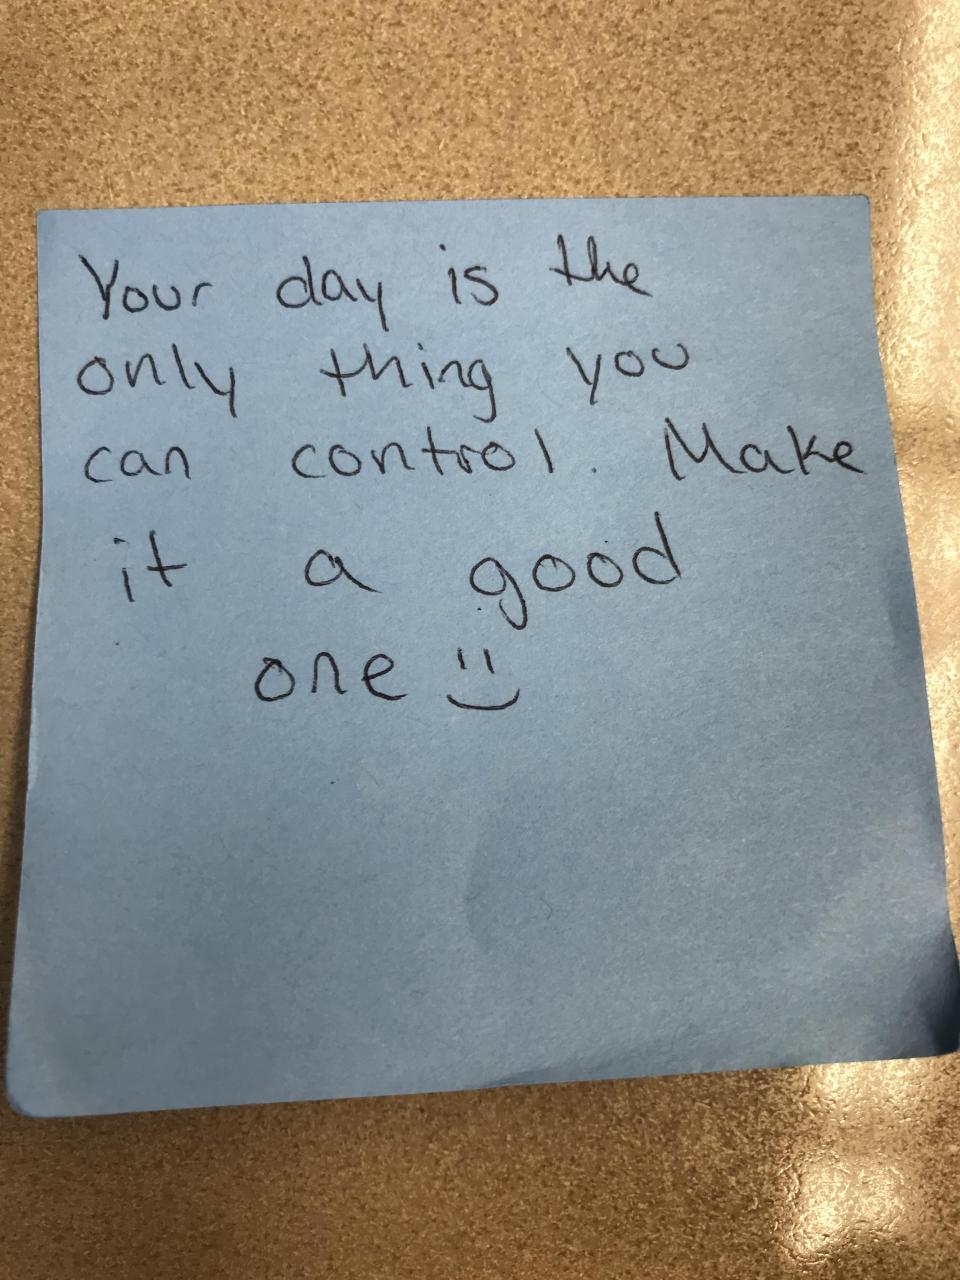 Your day is the
only thing you
can control. Make
it a good
one :)